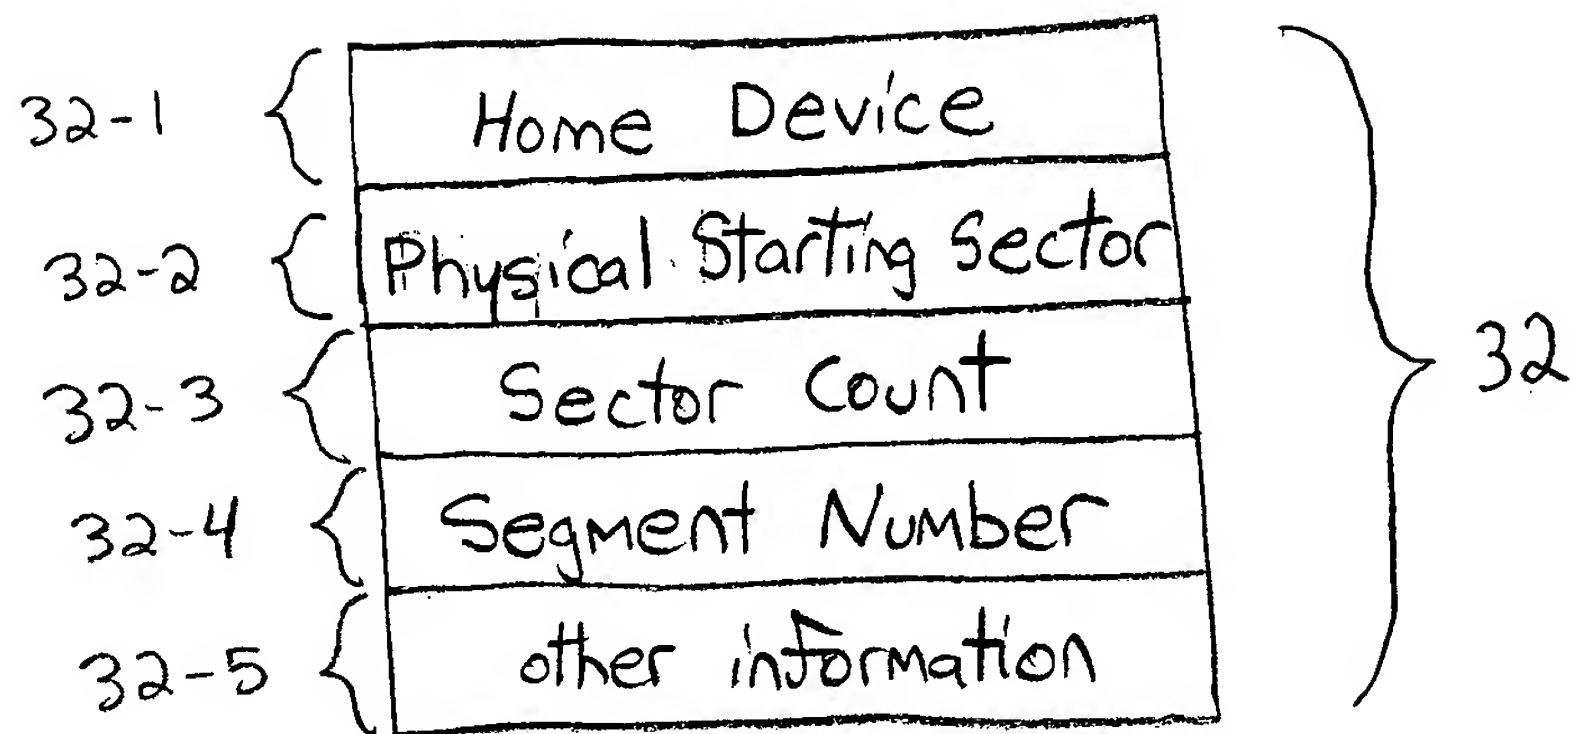 32-1 Home Device
32-2 Physical Starting Sector
32-3 Sector Count
32
32-4 Segment Number
32-5 other information